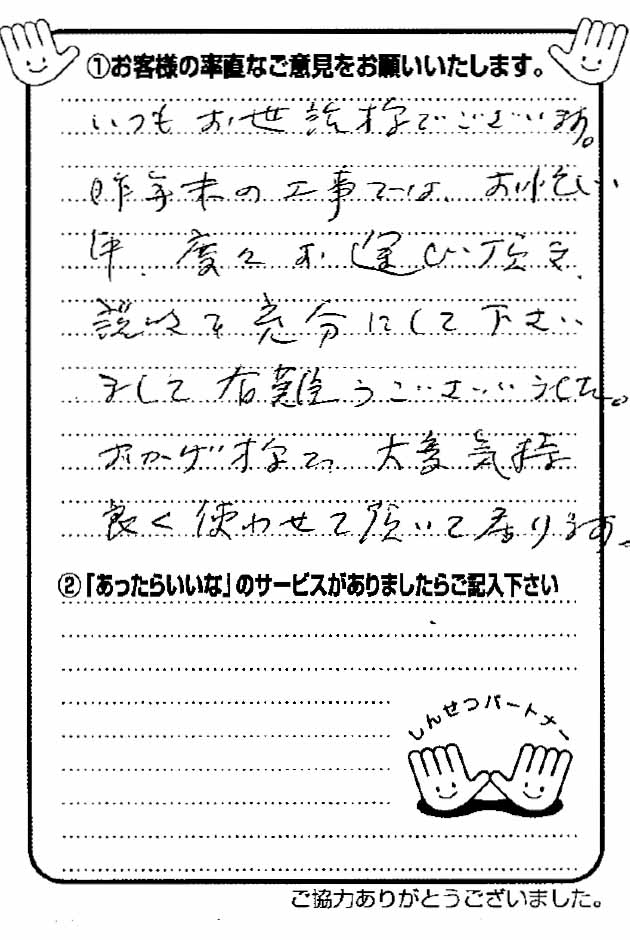 ①お客様の率直なご意見をお願いいたします。
いつもお世話様でございます。
昨年末の工事では、お忙しい
中、度々お運び頂き、
説明を充分にして下さい
まして有難うございました。
おかげ様で、大変気持
良く使わせて頂いて居ります。
②「あったらいいな」のサービスがありましたらご記入下さい
しんせつパートナー
ご協力ありがとうございました。